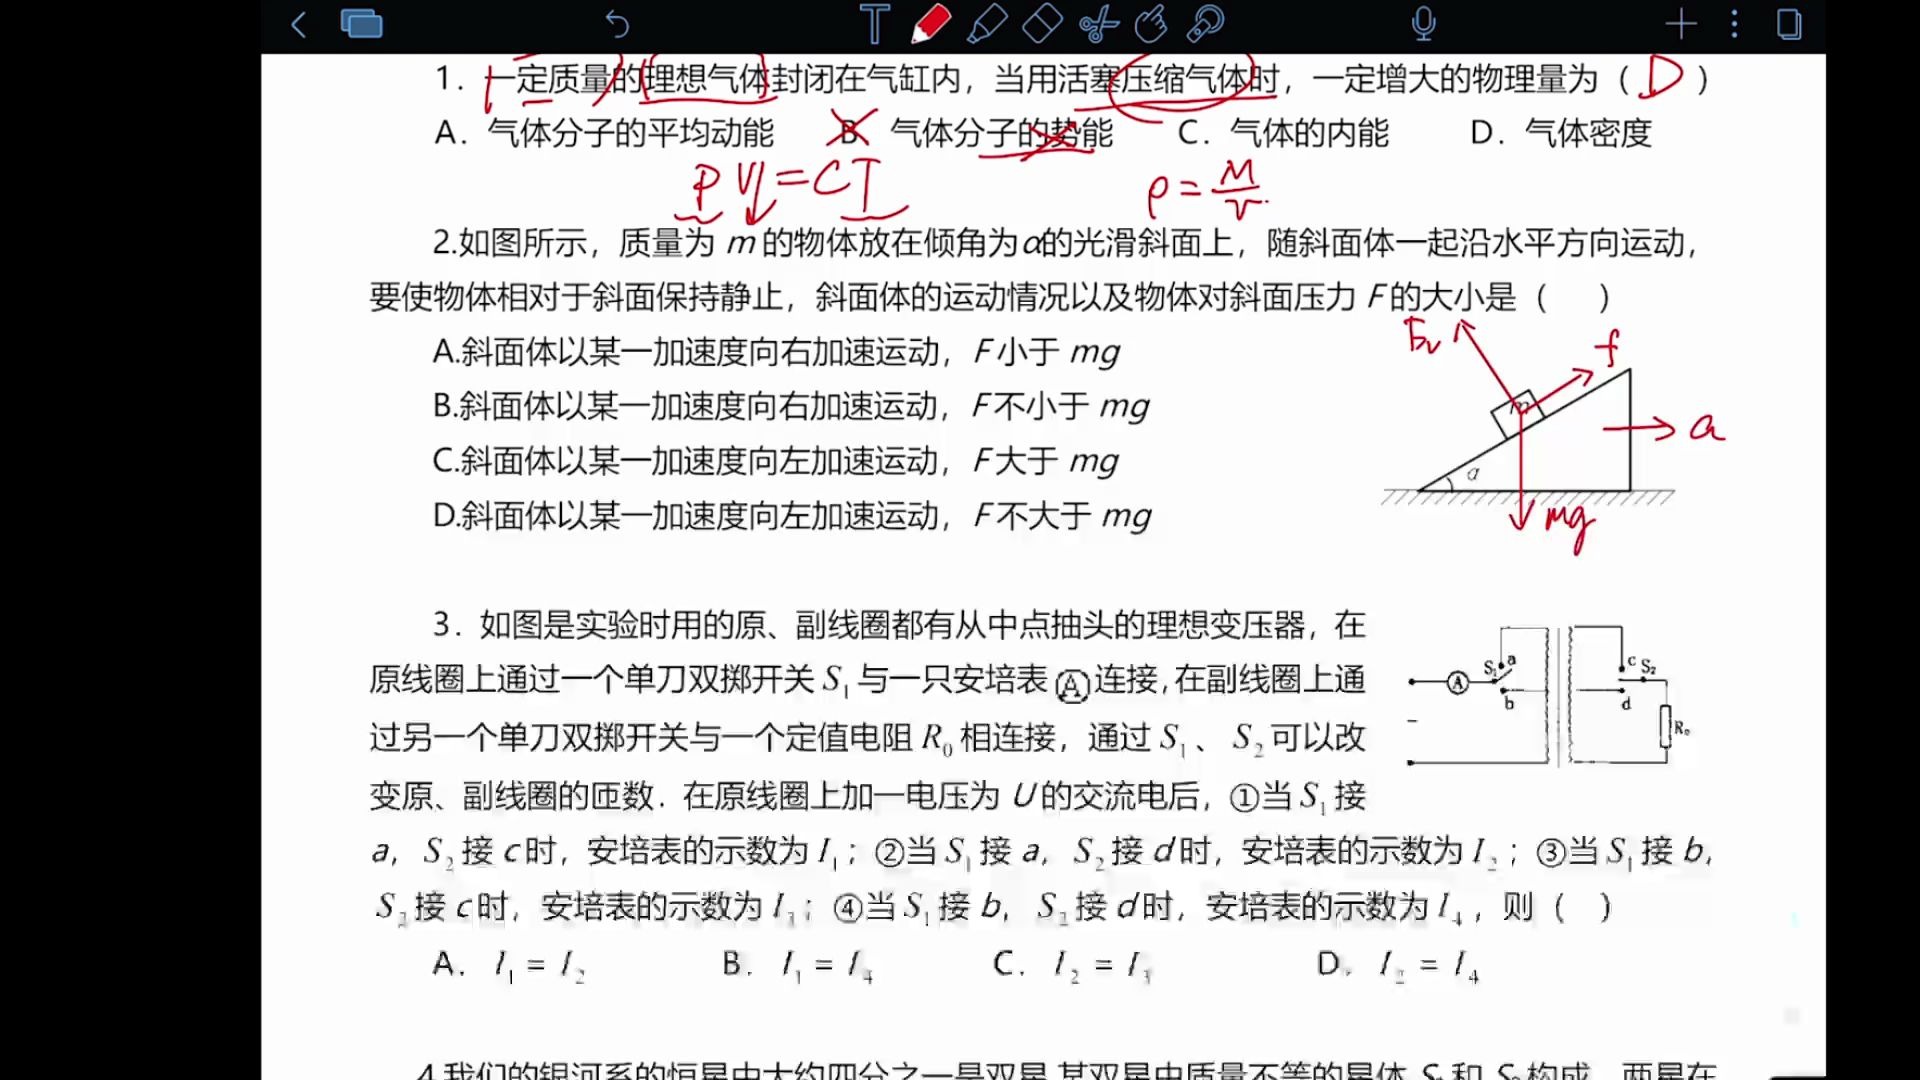 1．一定质量的理想气体封闭在气缸内，当用活塞压缩气体时，一定增大的物理量为（ D ）
A．气体分子的平均动能 B 气体分子的势能 C．气体的内能 D．气体密度
PV=CT ρ=M/V
2.如图所示，质量为 m 的物体放在倾角为α的光滑斜面上，随斜面体一起沿水平方向运动，
要使物体相对于斜面保持静止，斜面体的运动情况以及物体对斜面压力 F 的大小是（ ）
A.斜面体以某一加速度向右加速运动，F 小于 mg
B.斜面体以某一加速度向右加速运动，F 不小于 mg
C.斜面体以某一加速度向左加速运动，F 大于 mg
D.斜面体以某一加速度向左加速运动，F 不大于 mg
FN f
m
a
α
mg
3．如图是实验时用的原、副线圈都有从中点抽头的理想变压器，在
原线圈上通过一个单刀双掷开关 S₁ 与一只安培表Ⓐ连接，在副线圈上通
过另一个单刀双掷开关与一个定值电阻 R₀ 相连接，通过 S₁、S₂ 可以改
变原、副线圈的匝数．在原线圈上加一电压为 U 的交流电后，①当 S₁ 接
a，S₂ 接 c 时，安培表的示数为 I₁；②当 S₁ 接 a，S₂ 接 d 时，安培表的示数为 I₂；③当 S₁ 接 b，
S₂ 接 c 时，安培表的示数为 I₃；④当 S₁ 接 b，S₂ 接 d 时，安培表的示数为 I₄，则（ ）
A S₁ a b c S₂ d R₀
A．I₁ = I₂ B．I₁ = I₄ C．I₂ = I₃ D．I₂ = I₄
4.我们的银河系的恒星中大约四分之一是双星.某双星由质量不等的星体 S₁ 和 S₂ 构成，两星在